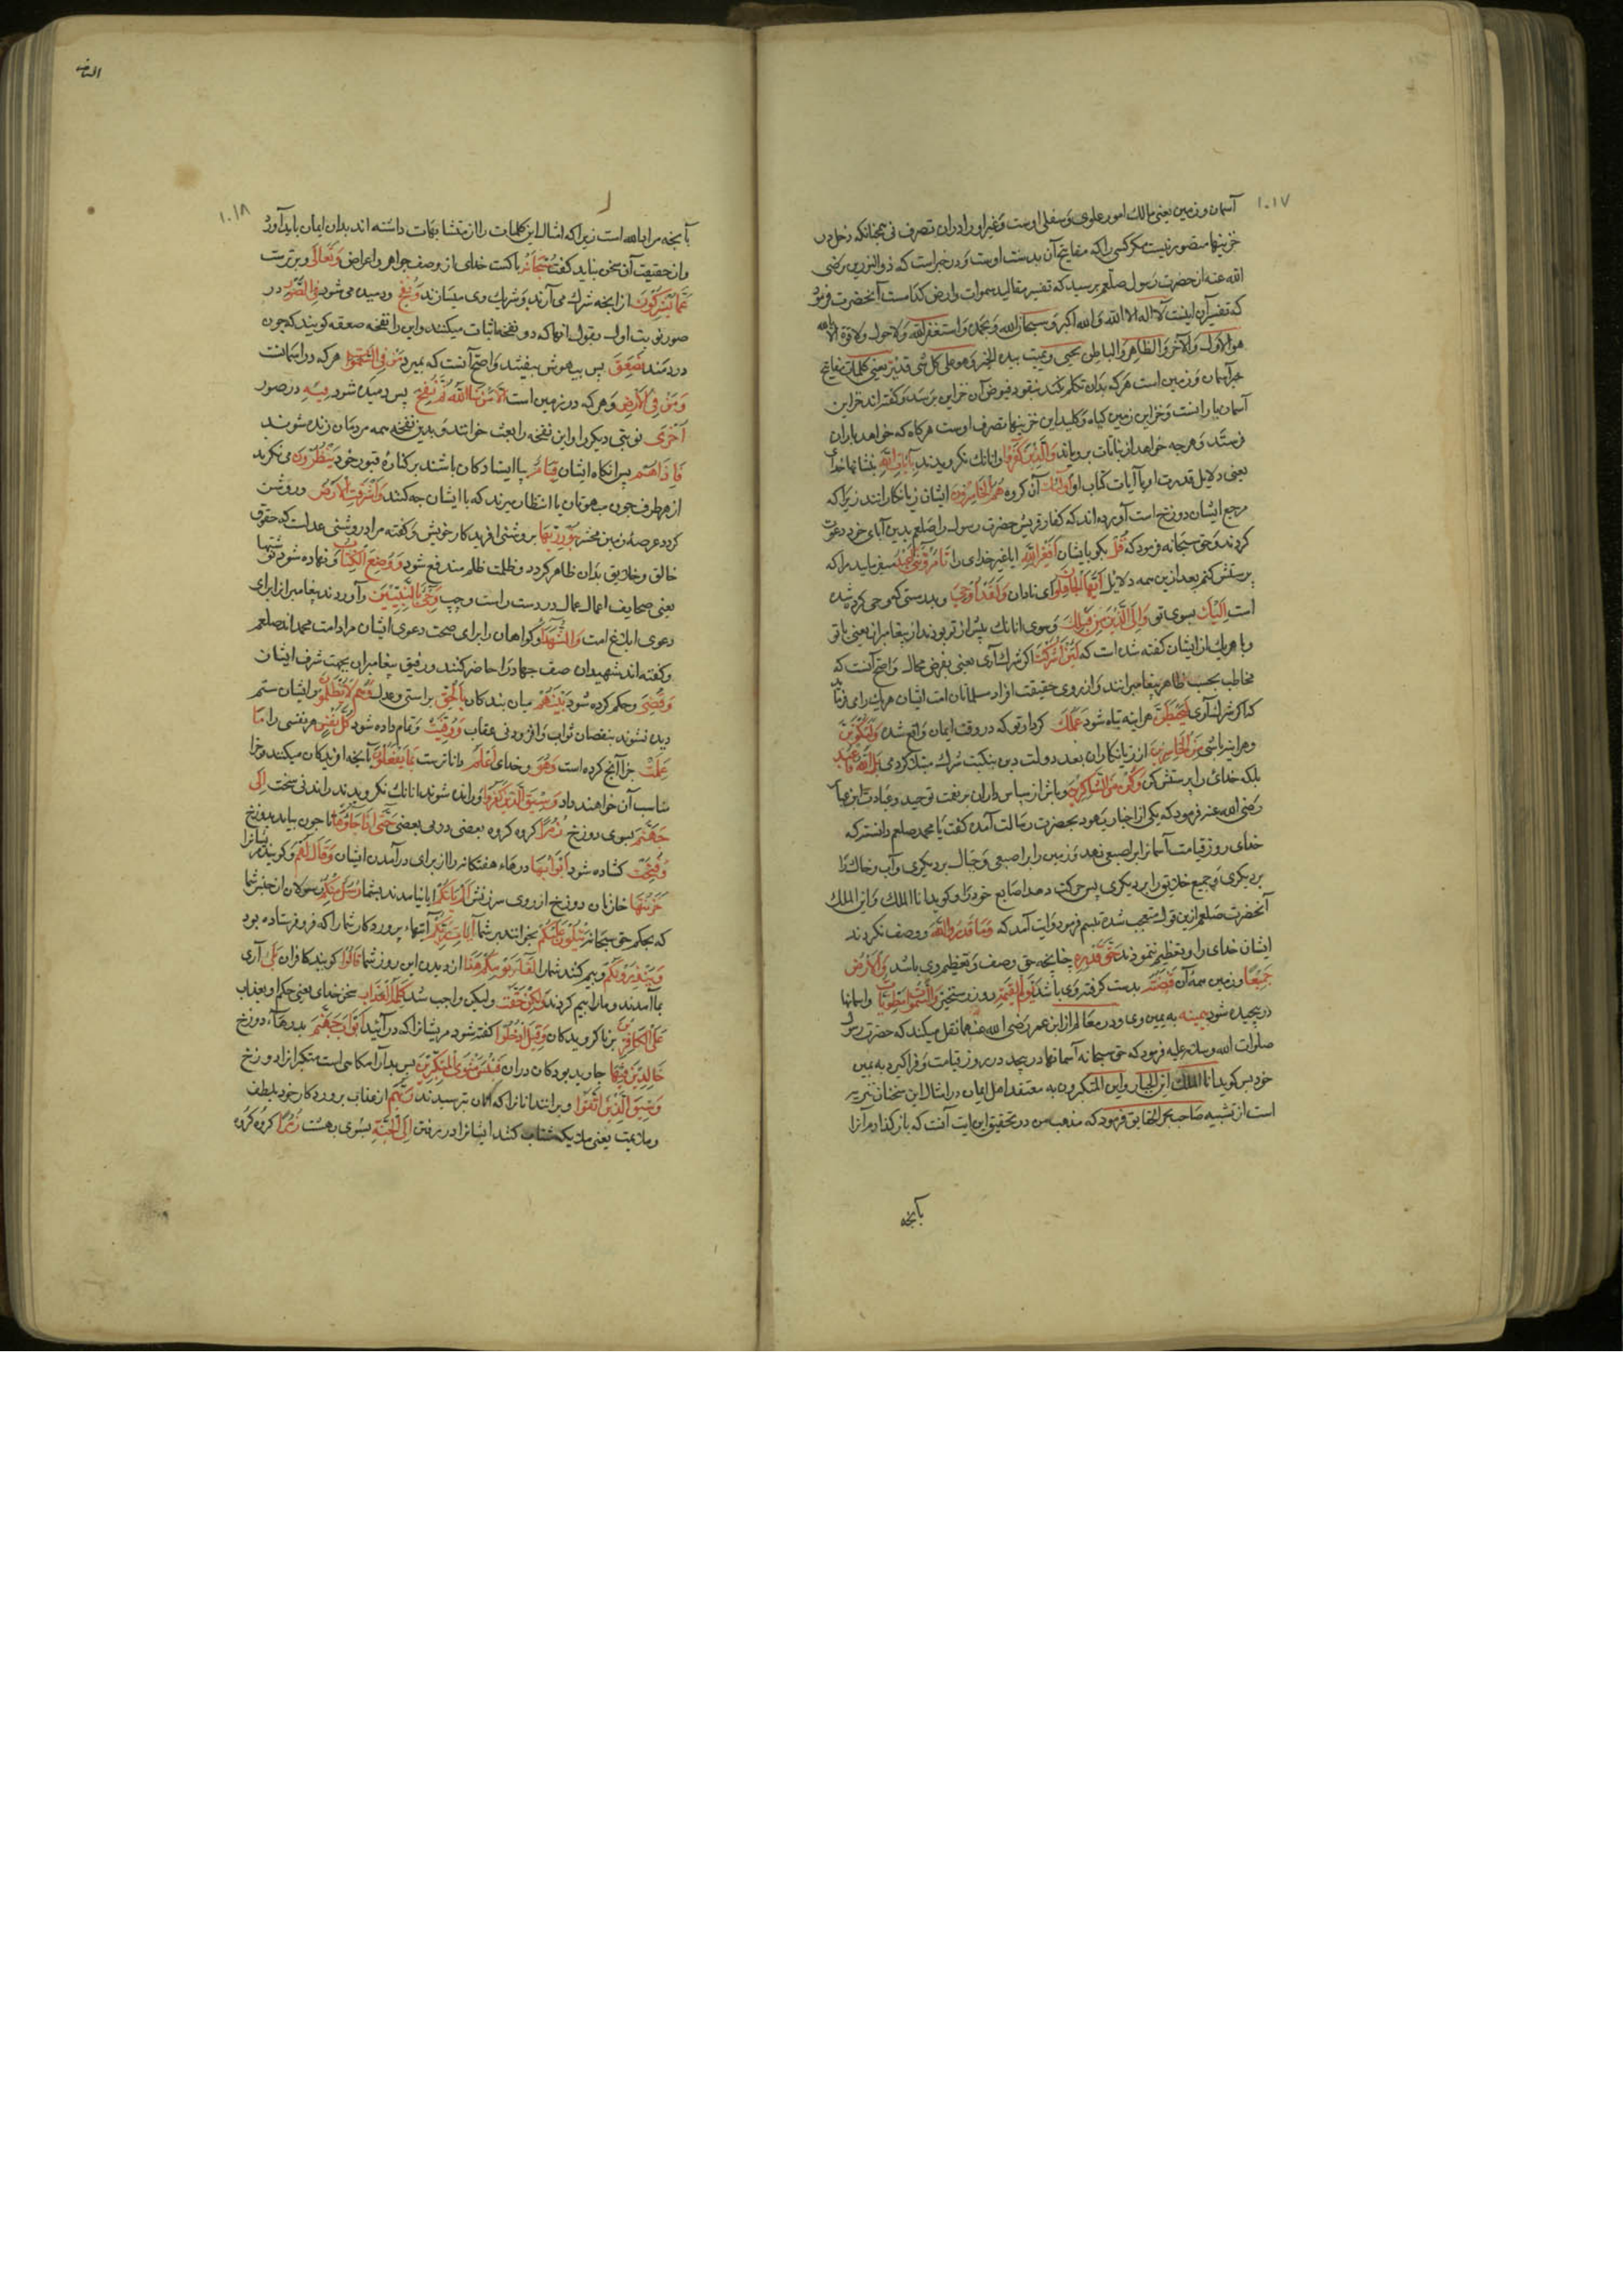 ۱۰۱۷
آسمان و زمین یعنی مالک امور علوی و سفلی اوست و غیر او را در ان تصرف نی همچنانکه دخل در
خزینها متصور نیست مکر کسی را که مفاتیح آن بدست اوست و در خبر است که ذوالنورین رضی
الله عنه از حضرت رسول صلعم پرسید که تفسیر مقالید سموات و ارض کدامست آنحضرت فرمود
که تفسیر آن اینست لا اله الا الله والله اکبر و سبحان الله و بحمده و استغفر الله ولا حول ولا قوة الا بالله
هو الاول والآخر والظاهر والباطن یحیی و یمیت بیده الخیر وهو علی کل شی قدیر یعنی کلمات مفاتیح
خیر آسمان و زمین است هرکه بدان تکلم کند بنقود فیوض آن خزاین برسد و کفته اند خزاین
آسمان بارانست و خزاین زمین کیاه و کلید این خزینها بتصرف اوست هرکاه که خواهد باران
فرستد و هرچه خواهد از نباتات برویاند وَالَّذِینَ کَفَرُوا وانانک نکرویدند بِآیَاتِ اللهِ بنشانها خدای
یعنی دلایل قدرت او یا آیات کتاب او اُولٰئِکَ آن کروه هُمُ الْخَاسِرُونَ ایشان زیانکارانند زیرا که
مرجع ایشان دوزخ است آورده اند که کفار قریش حضرت رسول را صلعم بدین آبای خود دعوت
کردند و حق سبحانه فرمود که قُلْ بکو بایشان اَفَغَیْرَ اللهِ ایا غیر خدای را تَأْمُرُونِّی اَعْبُدُ میفرمایید مرا که
پرستش کنم بعد از ین همه دلایل اَیُّهَا الْجَاهِلُونَ ای نادان وَلَقَدْ اُوحِیَ و بدرستی که وحی کرده شده
است اِلَیْکَ بسوی تو وَاِلَی الَّذِینَ مِنْ قَبْلِکَ و سوی انانک پیش از تو بودند از پیغامبران یعنی با تو
و با هریک از ایشان کفته شده است که لَئِنْ اَشْرَکْتَ اکر شرک آری یعنی بفرض محال و اصح آنست که
مخاطب بحسب ظاهر پیغامبرانند و از روی حقیقت افراد مسلمانان امت ایشان هریک را می فرماید
که اکر شرک آری لَیَحْبَطَنَّ هراینه تباه شود عَمَلُکَ کردار تو که در وقت ایمان واقع شده وَلَتَکُونَنَّ
و هراینه باشی مِنَ الْخَاسِرِینَ از زیانکاران بعد دولت دین بنکبت شرک مبتلا کردی بَلِ اللهَ فَاعْبُدْ
بلکه خدای را پرستش کن وَکُنْ مِنَ الشَّاکِرِینَ و باش از سپاس داران بر نعت توحید و عبادت ابن عباس
رضی الله عنه فرمود که یکی از احبار یهود بحضرت رسالت آمده کفت یا محمد صلعم دانسته که
خدای روز قیامت آسمانرا بر اصبعی نهد و زمین را بر اصبعی و جبال بر دیکری و آب و خاک را
بر دیکری و جمیع خلایق را بر دیکری پس حرکت دهد اصابع خود را و کوید انا الملک واین الملک
آنحضرت صلعم ازین قول متعجب شده تبسم فرمود و ایت آمد که وَمَا قَدَرُوا اللهَ و وصف نکردند
ایشان خدای را و تعظیم ننمودند حَقَّ قَدْرِهِ چنانچه حق وصف و تعظیم وی باشد وَالْاَرْضُ
جَمِیعًا و زمین همه آن قَبْضَتُهُ بدست کرفته وی باشد یَوْمَ الْقِیٰمَةِ روز رستخیز وَالسَّمٰوَاتُ مَطْوِیَّاتٌ و اسمانها
در پیچیده شود بِیَمِینِهِ به یمین وی و در معالم از ابن عمر رضی الله عنهما نقل میکند که حضرت رسول
صلوات الله وسلامه علیه فرمود که حق سبحانه آسمانها در پیچد در روز قیامت و فراکیرد به یمین
خود پس کوید انا الملک این الجبارون این المتکبرون به معتقد اهل ایمان در امثال این سخنان تنزیه
است از تشبیه صاحب بحر الحقایق فرمود که مذهب من در تحقیق این ایت آنست که باز کذارم آنرا
بآنچه
۱۰۱۸
بآنچه مراد الله است زیرا که امثال این کلمات را از متشابهات داشته اند بدان ایمان باید آورد
و از حقیقت آن سخن نباید کفت سُبْحَانَهُ پاکست خدای از وصف جواهر و اعراض وَتَعَالٰی و برترست
عَمَّا یُشْرِکُونَ از انچه شرک می آرند و شریک وی میسازند وَنُفِخَ و دمیده می شود فِی الصُّورِ در
صور نوبت اول و بقول انها که دو نفخه اثبات میکنند و این را نفخه صعقه کویند که چون
دردمند فَصَعِقَ پس بیهوش بیفتد و اصح آنست که بمیرد مَنْ فِی السَّمٰوَاتِ هرکه در اسمانست
وَمَنْ فِی الْاَرْضِ و هرکه در زمین است اِلَّا مَنْ شَاءَ اللهُ ثُمَّ نُفِخَ پس دمیده شود فِیهِ در صور
اُخْرٰی نوبتی دیکر را و این نفخه را بعث خوانند و بدین نفخه همه مردمان زنده شوند
فَاِذَا هُمْ پس انکاه ایشان قِیَامٌ بپا ایستادکان باشند بر کناره قبور خود یَنْظُرُونَ می نکرند
از هر طرف چون مبهوتان یا انتظار میبرند که با ایشان چه کنند وَاَشْرَقَتِ الْاَرْضُ و روشن
کردد عرصه زمین محشر بِنُورِ رَبِّهَا بروشنی افرید کار خویش و کفته مراد روشنی عدلست که حقوق
خالق و خلایق بدان ظاهر کردد و ظلمت ظلم مندفع شود وَوُضِعَ الْکِتَابُ و نهاده شود نوشتها
یعنی صحایف اعمال عمال در دست راست و چپ وَجِیءَ بِالنَّبِیِّینَ و آوردند پیغامبرانرا برای
دعوی ابلاغ امت وَالشُّهَدَاءِ و کواهان را برای صحت دعوی ایشان مراد امت محمد اند صلعم
و کفته اند شهیدان صف جهاد را حاضر کنند و رفیق پیغامبران بجهت شرف ایشان
وَقُضِیَ و حکم کرده شود بَیْنَهُمْ میان بندکان بِالْحَقِّ براستی و عدل وَهُمْ لَا یُظْلَمُونَ و ایشان ستم
دیده نشوند بنقصان ثواب و افزودنی عقاب وَوُفِّیَتْ و تمام داده شود کُلُّ نَفْسٍ هر نفسی را مَا
عَمِلَتْ جزا آنچ کرده است وَهُوَ و خدای اَعْلَمُ داناترست بِمَا یَفْعَلُونَ بآنچه افریدکان میکنند و جزا
مناسب آن خواهند داد وَسِیقَ الَّذِینَ کَفَرُوا و رانده شوند انانک نکرویدند راندنی سخت اِلٰی
جَهَنَّمَ بسوی دوزخ زُمَرًا کروه کروه بعضی در پی بعضی حَتّٰی اِذَا جَاؤُهَا تا چون بیایند بدوزخ
فُتِحَتْ کشاده شود اَبْوَابُهَا درهاء هفتکانه را از برای درآمدن ایشان وَقَالَ لَهُمْ و کویند مر ایشانرا
خَزَنَتُهَا خازنان دوزخ از روی سرزنش اَلَمْ یَأْتِکُمْ ایا نیامدند بشما رُسُلٌ مِنْکُمْ رسولان از جنس شما
که بحکم حق سبحانه یَتْلُونَ عَلَیْکُمْ بخوانند بر شما آیَاتِ رَبِّکُمْ آیتهاء پروردکار شما را که فرو فرستاده بود
وَیُنْذِرُونَکُمْ و بیم کنند شما را لِقَاءَ یَوْمِکُمْ هٰذَا از دیدن این روز شما قَالُوا کویند کافران بَلٰی آری
بما آمدند و مارا بیم کردند وَلٰکِنْ حَقَّتْ و لیکن واجب شد کَلِمَةُ الْعَذَابِ سخن خدای یعنی حکم او بعذاب
عَلَی الْکَافِرِینَ بر ناکرویدکان قِیلَ ادْخُلُوا کفته شود مر یشانرا که درآئید اَبْوَابَ جَهَنَّمَ بدرهاء دوزخ
خَالِدِینَ فِیهَا جاوید بودکان در ان فَبِئْسَ مَثْوَی الْمُتَکَبِّرِینَ پس بد آرامکاهی است متکبرانرا دوزخ
وَسِیقَ الَّذِینَ اتَّقَوْا و برانند انانرا که ترسیدند رَبَّهُمْ از عذاب پروردکار خود بلطف
و ملایمت یعنی ملایکه شتاب کنند ایشانرا در رفتن اِلَی الْجَنَّةِ بسوی بهشت زُمَرًا کروه کروه